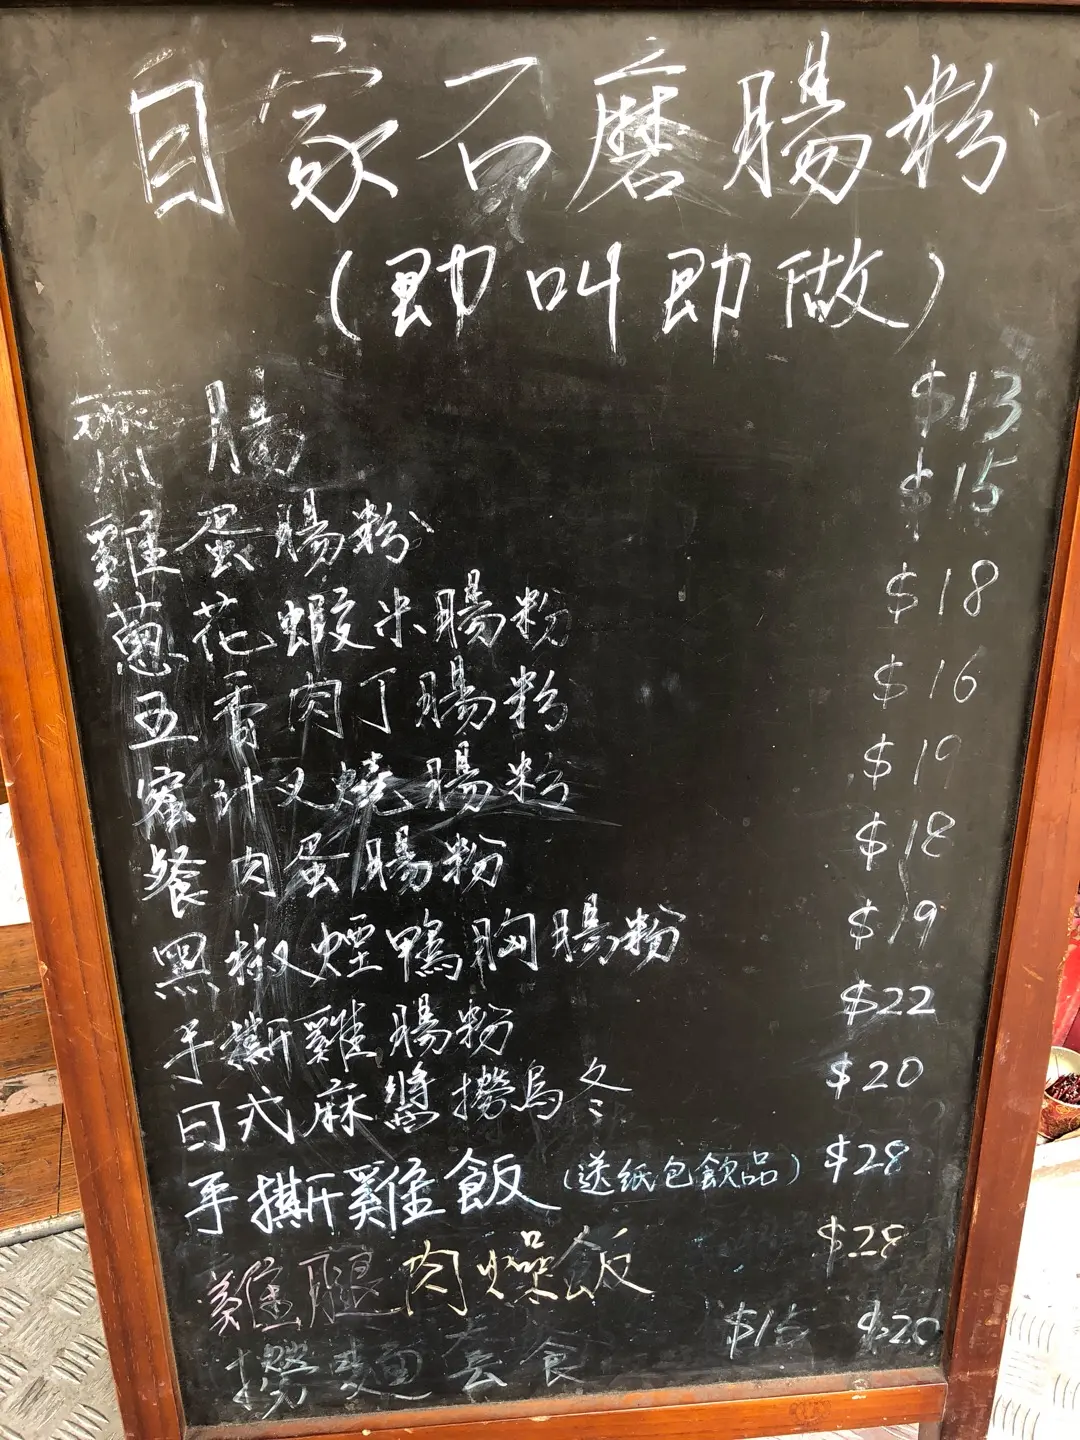 自家石磨腸粉
(即叫即做)
齋腸 $13
雞蛋腸粉 $15
蔥花蝦米腸粉 $18
五香肉丁腸粉 $16
蜜汁叉燒腸粉 $19
餐肉蛋腸粉 $18
黑椒煙鴨胸腸粉 $19
手撕雞腸粉 $22
日式麻醬撈烏冬 $20
手撕雞飯 (送紙包飲品) $28
雞腿肉燥飯 $28
撈麵套食 $15 $20